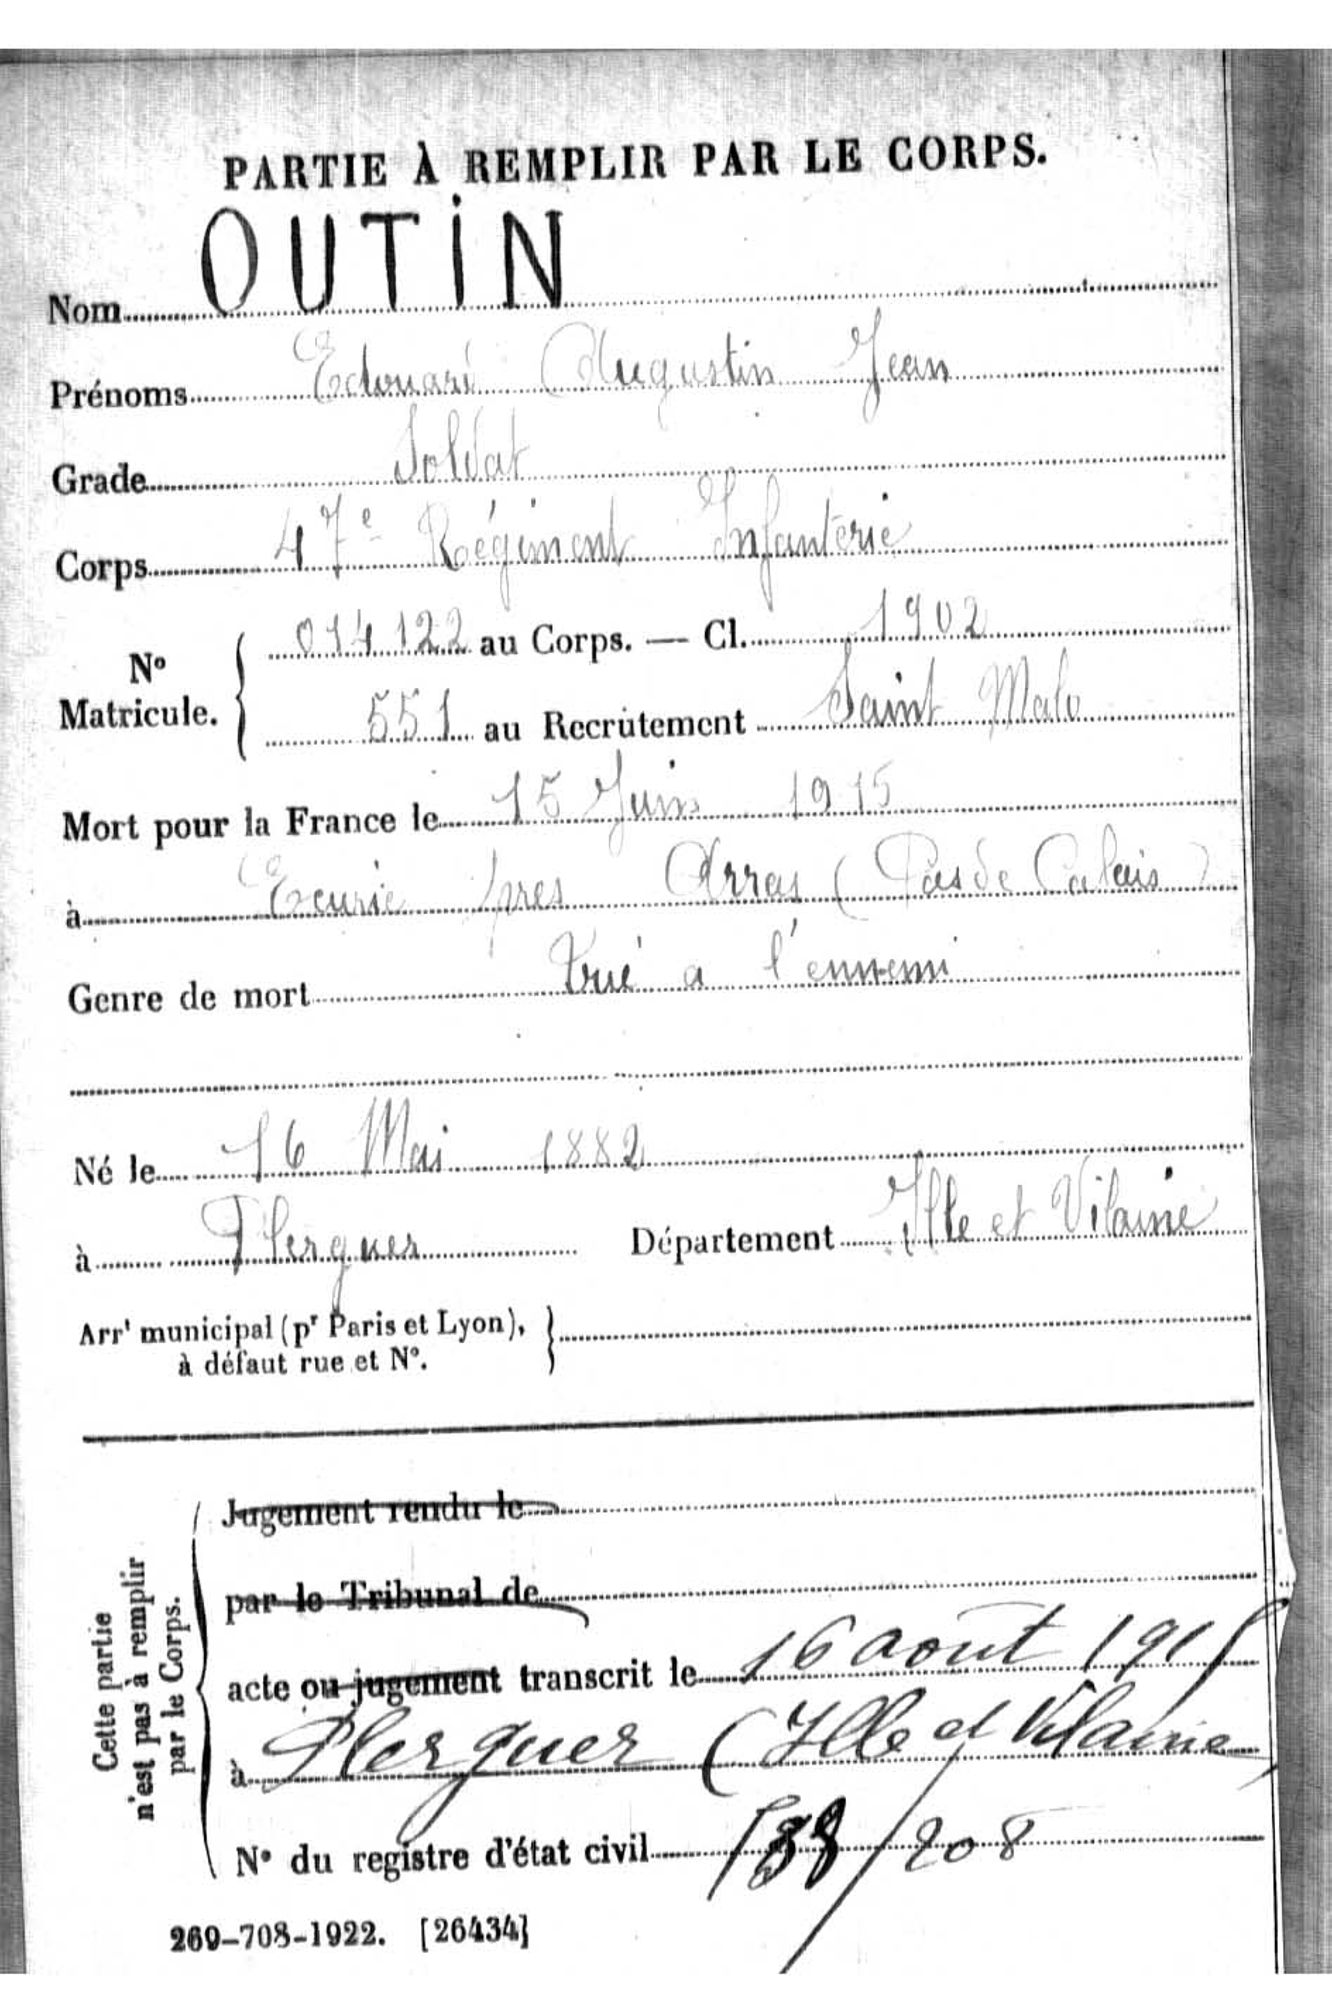 PARTIE À REMPLIR PAR LE CORPS.
Nom OUTIN
Prénoms Edouard Augustin Jean
Grade Soldat
Corps 47e Régiment Infanterie
No Matricule. { 014122 au Corps. — Cl. 1902
551 au Recrutement Saint Malo
Mort pour la France le 15 Juin 1915
à Ecurie pres Arras (Pas de Calais)
Genre de mort tué a l'ennemi
Né le 16 Mai 1882
à Plerguer Département Ille et Vilaine
Arrt municipal (pr Paris et Lyon), }
à défaut rue et N°.
Cette partie
n'est pas à remplir
par le Corps.
Jugement rendu le
par le Tribunal de
acte ou jugement transcrit le 16 aout 1915
à Plerguer (Ille et Vilaine)
N° du registre d'état civil /208
269-708-1922. [26434]